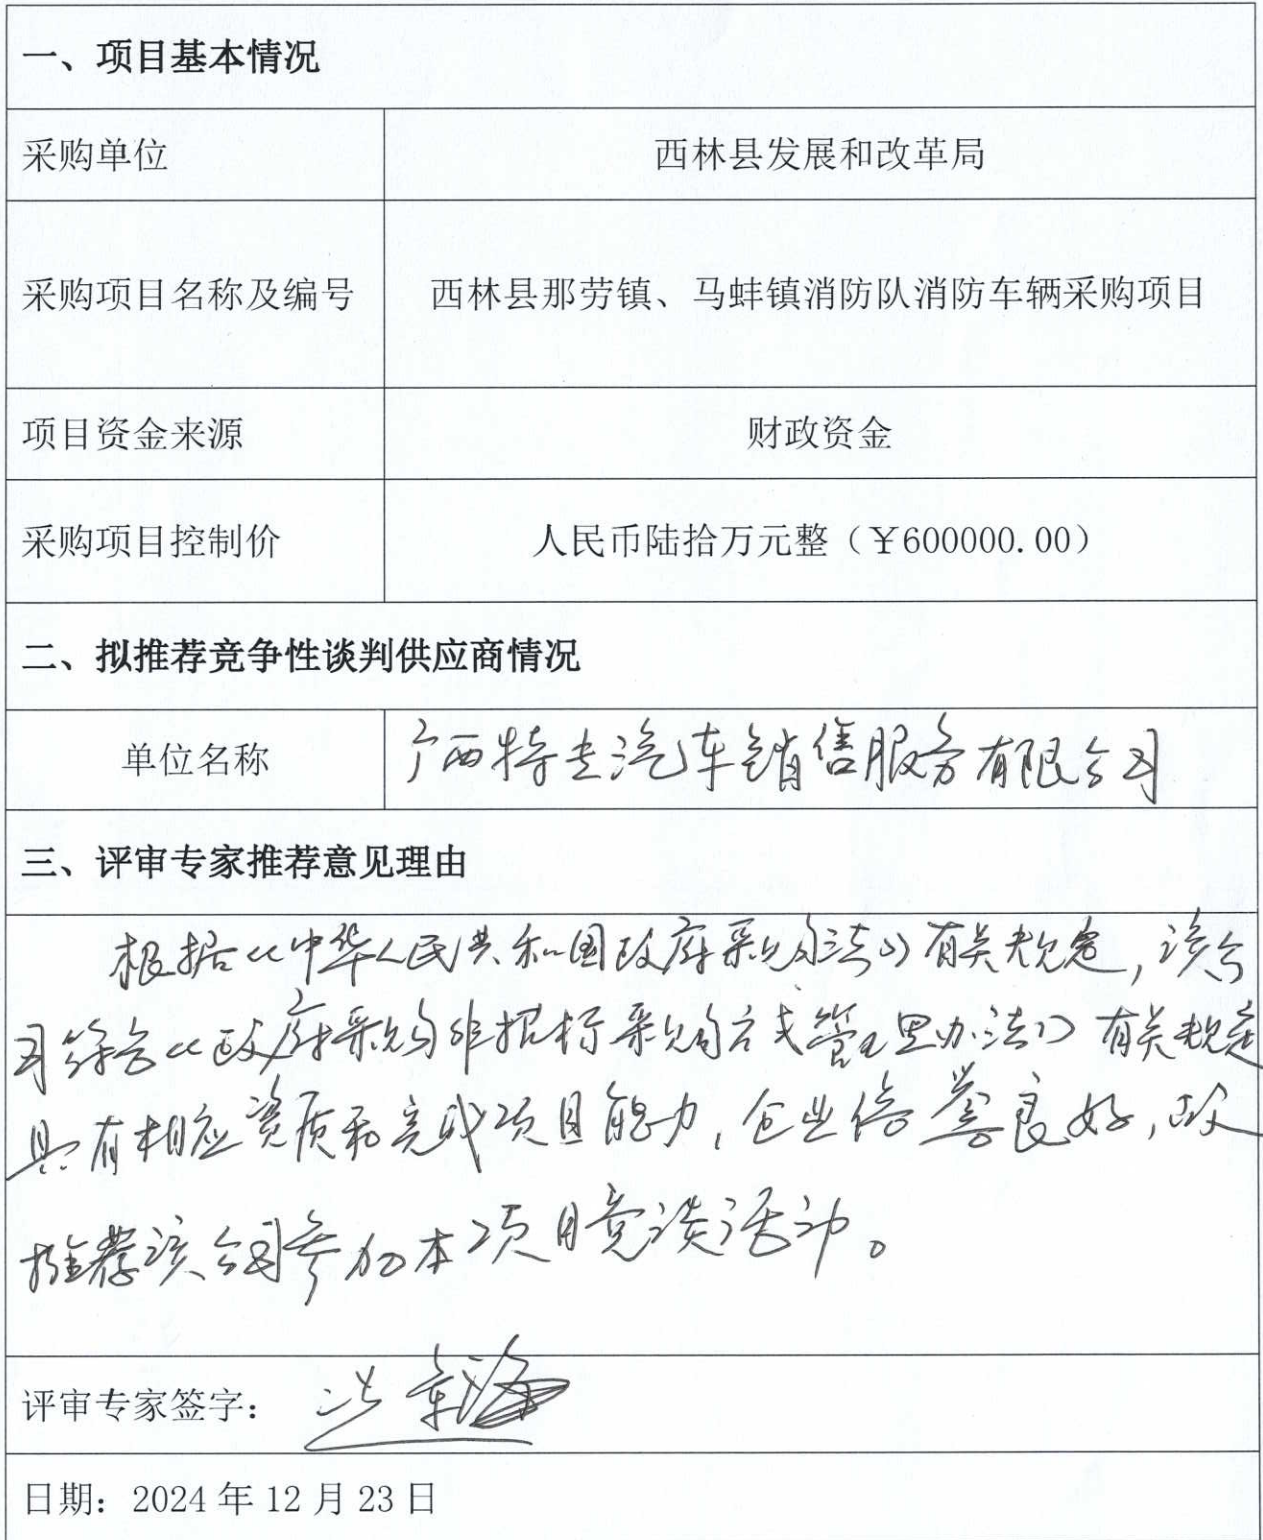 一、项目基本情况
采购单位
西林县发展和改革局
采购项目名称及编号
西林县那劳镇、马蚌镇消防队消防车辆采购项目
项目资金来源
财政资金
采购项目控制价
人民币陆拾万元整（￥600000.00）
二、拟推荐竞争性谈判供应商情况
单位名称
广西特专汽车销售服务有限公司
三、评审专家推荐意见理由
根据《中华人民共和国政府采购法》有关规定，该公
司符合《政府采购非招标采购方式管理办法》有关规定
具有相应资质和完成项目能力，企业信誉良好，故
推荐该公司参加本项目竞谈活动。
评审专家签字：
日期：2024年12月23日